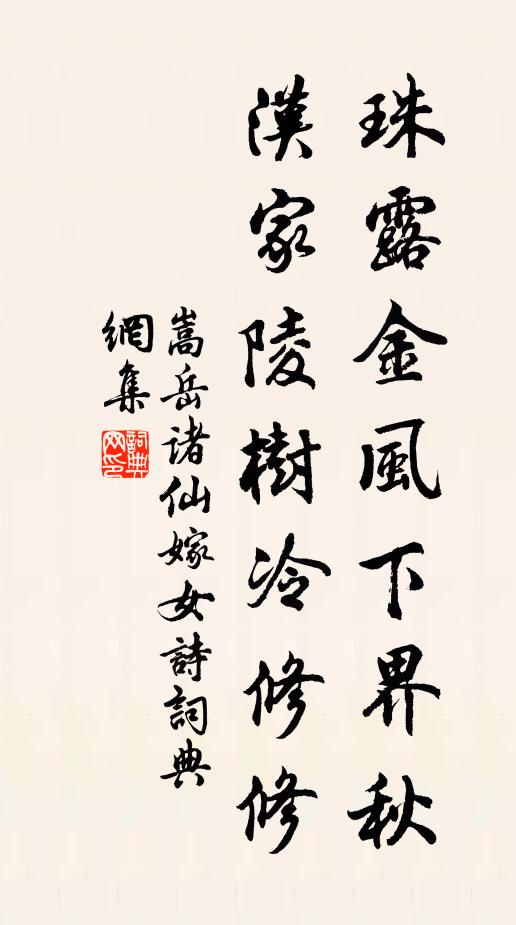 珠露金風下界秋
漢家陵樹冷修修
嵩岳诸仙嫁女詩詞典
網集
詞典
网印